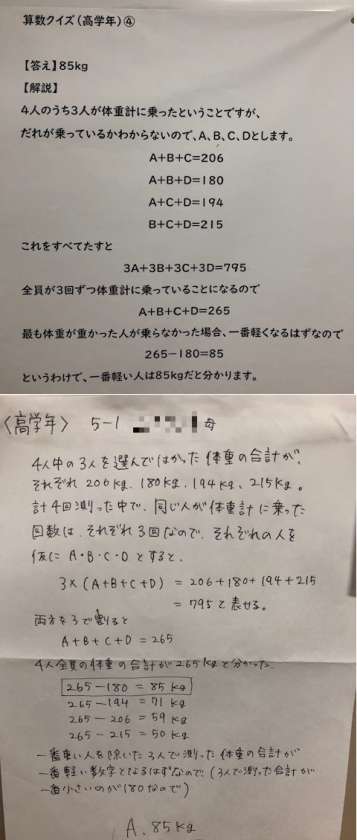 算数クイズ(高学年)④
【答え】85kg
【解説】
4人のうち3人が体重計に乗ったということですが、
だれが乗っているかわからないので、A、B、C、Dとします。
A+B+C=206
A+B+D=180
A+C+D=194
B+C+D=215
これをすべてたすと
3A+3B+3C+3D=795
全員が3回ずつ体重計に乗っていることになるので
A+B+C+D=265
最も体重が重かった人が乗らなかった場合、一番軽くなるはずなので
265-180=85
というわけで、一番軽い人は85kgだと分かります。
〈高学年〉 5-1 母
4人中の3人を選んではかった体重の合計が、
それぞれ 206kg、180kg、194kg、215kg。
計4回測った中で、同じ人が体重計に乗った
回数は、それぞれ3回なので、それぞれの人を
仮に A・B・C・D とすると、
3×(A+B+C+D) = 206+180+194+215
= 795 と表せる。
両方を3で割ると
A+B+C+D = 265
4人全員の体重の合計が265kgと分かった。
265-180 = 85 kg
265-194 = 71 kg
265-206 = 59 kg
265-215 = 50 kg
一番重い人を除いた3人で測った体重の合計が
一番軽い数字となるはずなので(3人で測った合計が
一番小さいのが180なので)
A. 85kg